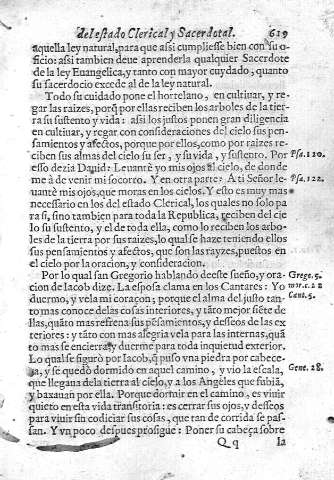 del estado Clerical, y Sacerdotal. 619
aquella ley natural, para que assi cumpliesse bien con su o-
ficio: assi tambien deue aprenderla qualquier Sacerdote
de la ley Euangelica, y tanto con mayor cuydado, quanto
su sacerdocio excede al de la ley natural.
Todo su cuidado pone el hortelano, en cultiuar, y re-
gar las raizes, porq̃ por ellas reciben los arboles de la tier-
ra su sustento y vida: assi los justos ponen gran diligencia
en cultiuar, y regar con consideraciones del cielo sus pen-
samientos y afectos, porque por ellos, como por raizes re-
ciben sus almas del cielo su ser, y su vida, y sustento. Por Psa. 120.
esso dezia Dauid: Leuantè yo mis ojos al cielo, de donde
me à de venir mi socorro. Y en otra parte: A ti Señor le- Psa. 122.
uantè mis ojos, que moras en los cielos. Y esto es muy mas
necessario en los del estado Clerical, los quales no solo pa
ra si, sino tambien para toda la Republica, reciben del cie
lo su sustento, y el de toda ella, como lo reciben los arbo-
les de la tierra por sus raizes, lo qual se haze teniendo ellos
sus pensamientos y afectos, que son las rayzes, puestos en
el cielo por la oracion, y consideracion.
Por lo qual san Gregorio hablando deeste sueño, y ora Grego. 5.
cion de Iacob dize. La esposa clama en los Cantares: Yo
duermo, y vela mi coraçon; porque el alma del justo tan- Cant. 5.
to mas conoce delas cosas interiores, y tãto mejor siẽte de
llas, quãto mas refrena sus pẽsamientos, y desseos de las ex
teriores: y tãto con mas alegria vela para las internas, quã
to mas se encierra, y duerme para toda inquietud exterior.
Lo qual se figurò por Iacob, q̃ puso vna piedra por cabece-
ra, y se quedò dormido en aquel camino, y vio la escala, Gene. 28.
que llegaua dela tierra al cielo, y a los Angeles que subiã,
y baxauan por ella. Porque dormir en el camino, es viuir
quieto en esta vida transitoria: es cerrar sus ojos, y desseos
para viuir sin codiciar sus cosas, que tan de corrida se pas-
san. Y vn poco despues prosigue: Poner su cabeça sobre
Qq la